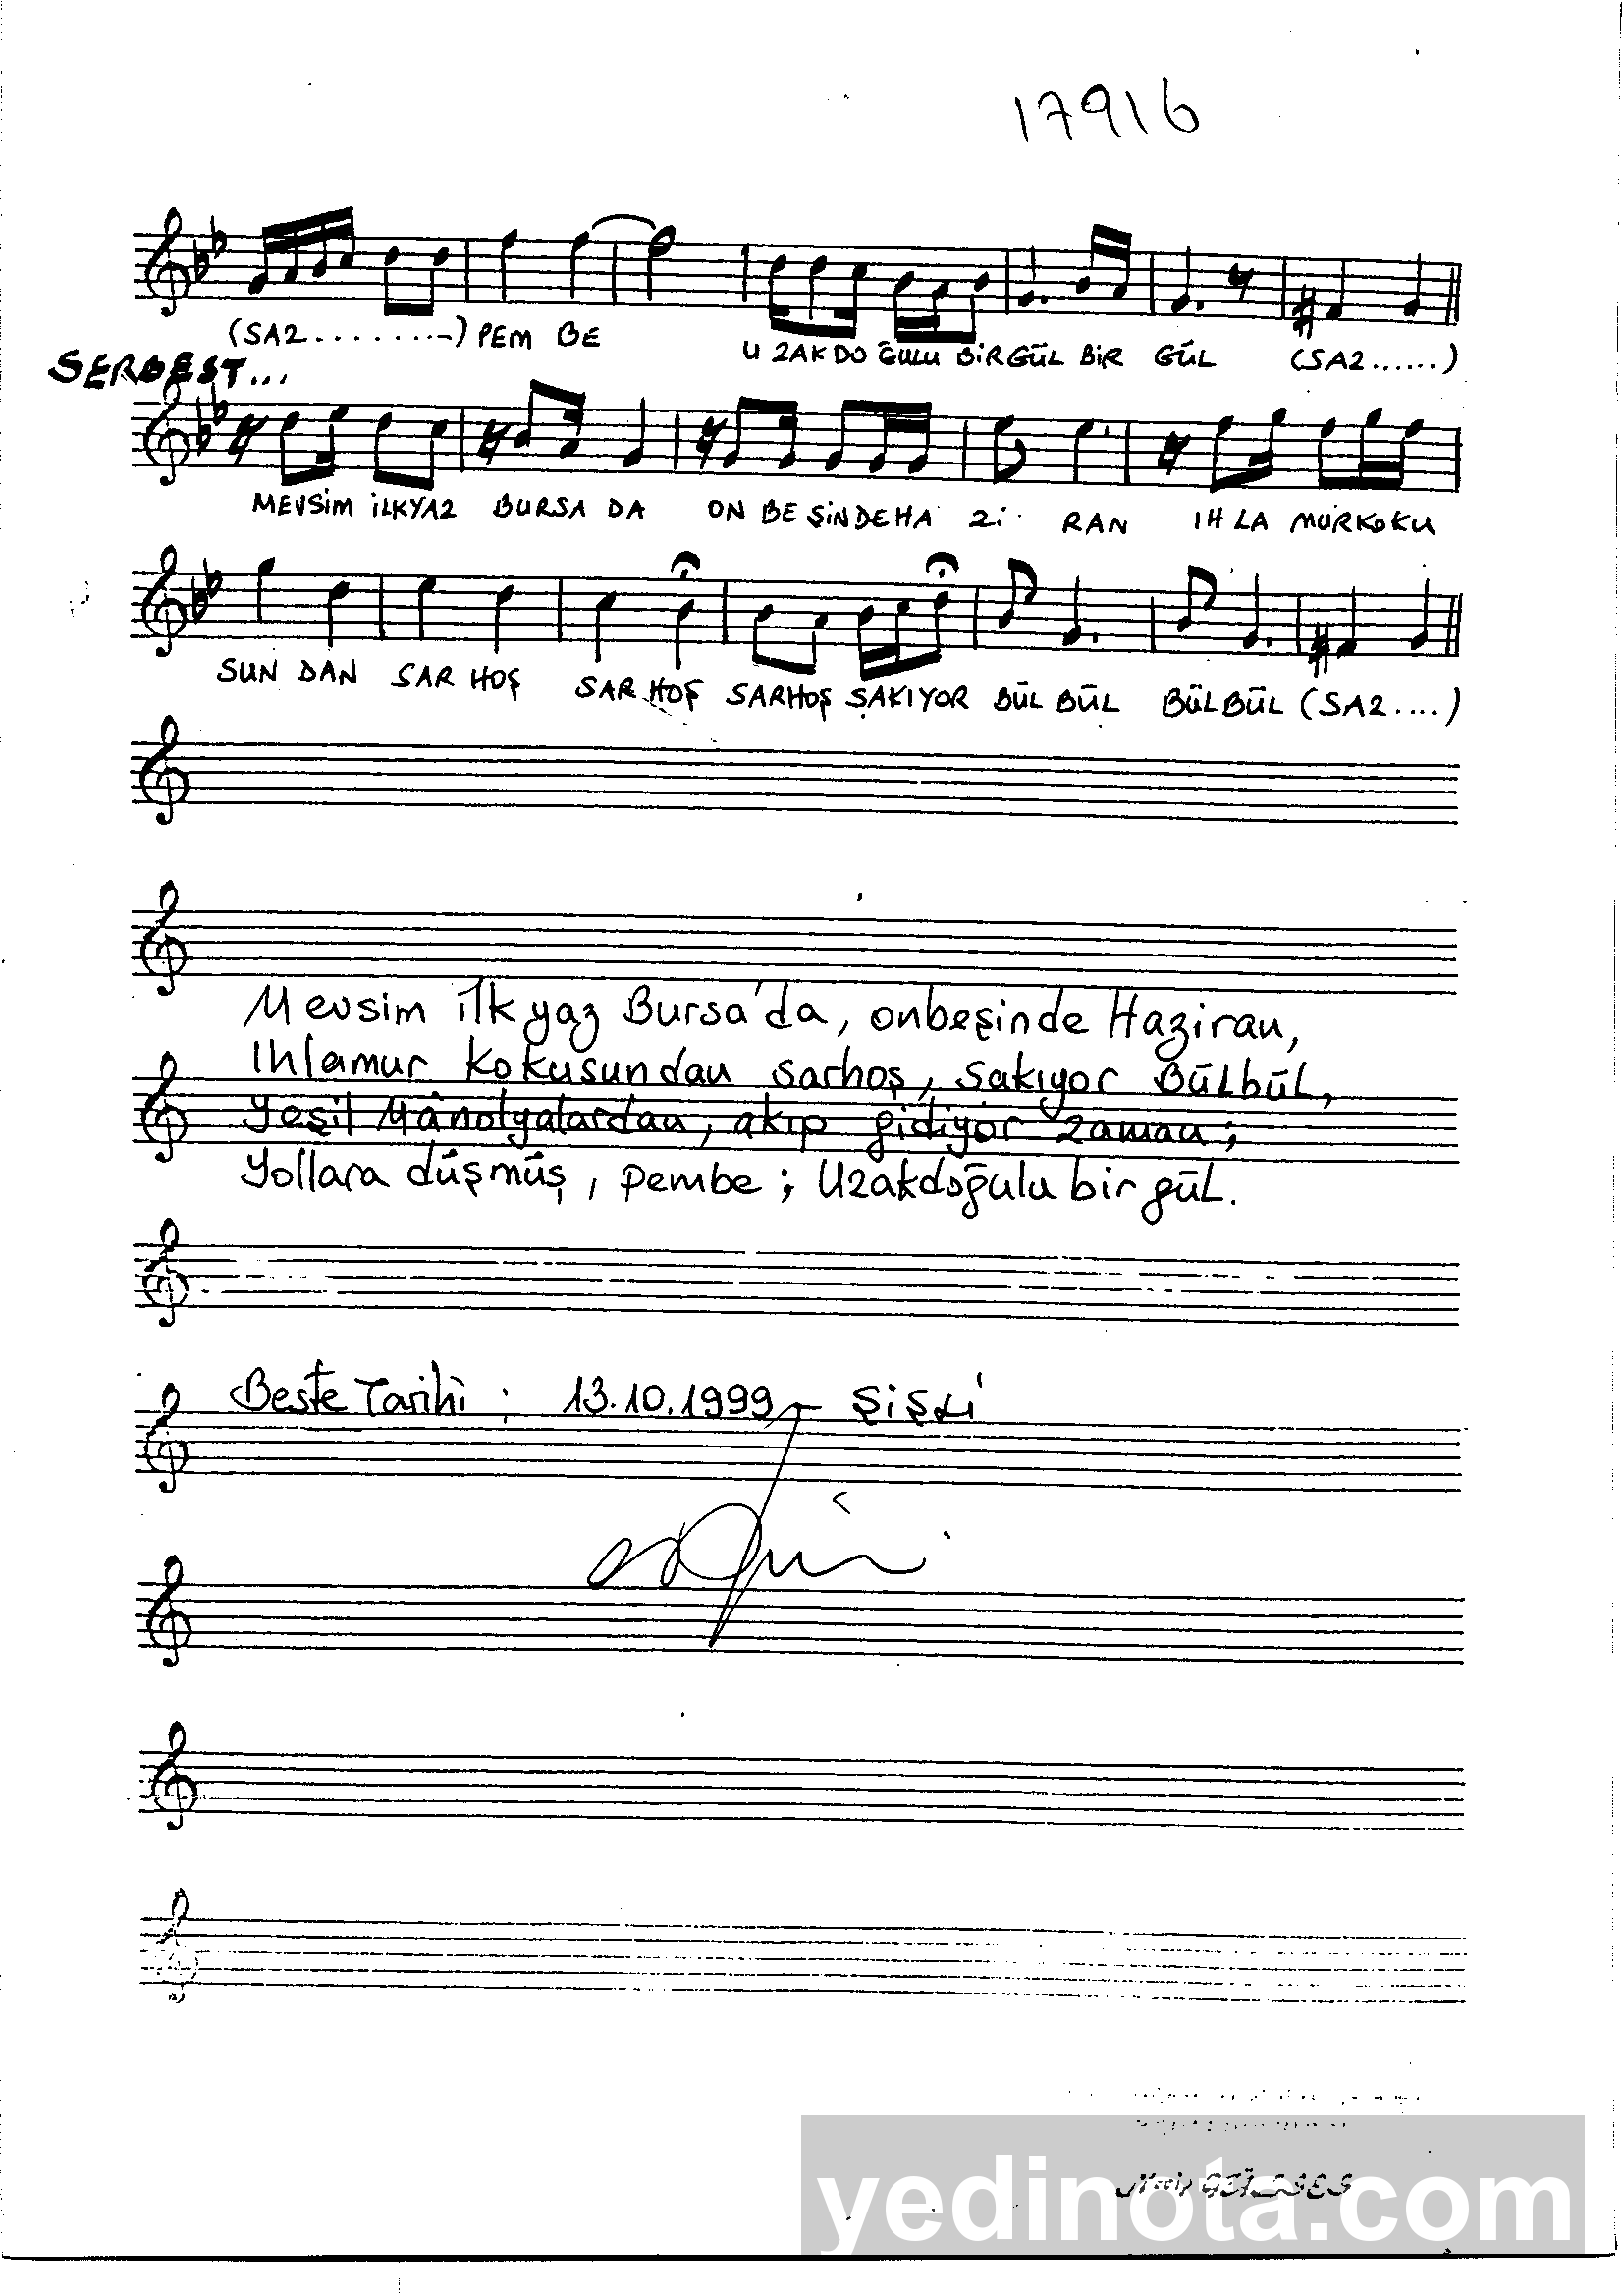 17916
(SAZ........-) PEM BE U ZAK DO ĞULU BİR GÜL BİR GÜL (SAZ......)
SERBEST...
MEVSİM İLKYAZ BURSA DA ON BE ŞİNDE HA Zİ RAN IH LA MUR KO KU
SUN DAN SAR HOŞ SAR HOŞ SARHOŞ ŞAKIYOR BÜL BÜL BÜLBÜL (SAZ....)
Mevsim ilk yaz Bursa'da, onbeşinde Haziran,
Ihlamur kokusundan sarhoş, şakıyor Bülbül,
Yeşil Mânolyalardan, akıp gidiyor zaman;
Yollara düşmüş, pembe; Uzakdoğulu bir gül.
Beste Tarihi : 13.10.1999 - ŞİŞLİ
yedinota.com